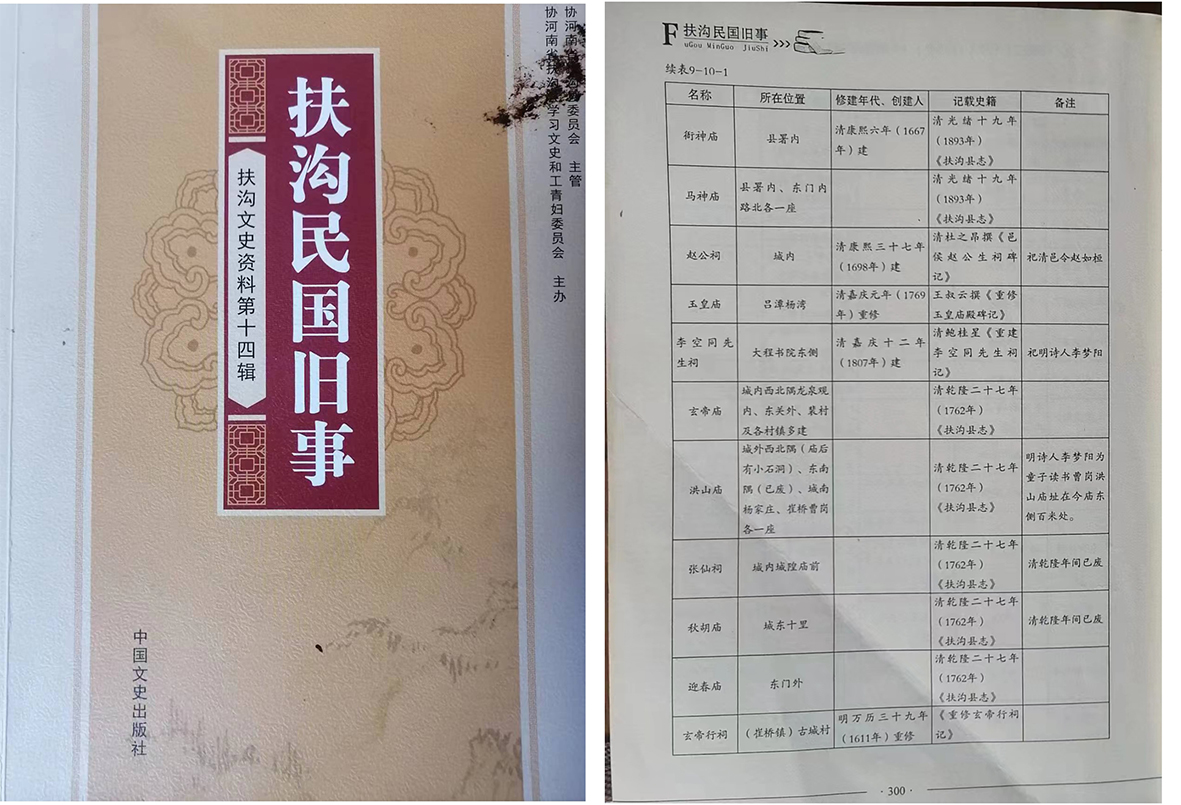 扶沟民国旧事
扶沟文史资料第十四辑
委员会 主管
学习文史和工青妇委员会 主办
中国文史出版社
F扶沟民国旧事
uGou MinGuo JiuShi
续表9-10-1
名称 所在位置 修建年代、创建人 记载史籍 备注
衙神庙 县署内 清康熙六年(1667 清光绪十九年
年)建 (1893年)
《扶沟县志》
马神庙 县署内、东门内 清光绪十九年
路北各一座 (1893年)
《扶沟县志》
赵公祠 城内 清康熙三十七年 清杜之昂撰《邑
(1698年)建 侯赵公生祠碑 祀清邑令赵如桓
记》
玉皇庙 吕潭杨湾 清嘉庆元年(1769 王叔云撰《重修
年)重修 玉皇庙殿碑记》
李空同先 大程书院东侧 清嘉庆十二年 清鲍桂星《重建
生祠 (1807年)建 李空同先生祠 祀明诗人李梦阳
记》
玄帝庙 城内西北隅龙泉观 清乾隆二十七年
内、东关外、裴村 (1762年)
及各村镇多建 《扶沟县志》
洪山庙 城外西北隅(庙后
有小石洞)、东南 清乾隆二十七年 明诗人李梦阳为
隅(已废)、城南 (1762年) 童子读书曹岗洪
杨家庄、崔桥曹岗 《扶沟县志》 山庙址在今庙东
各一座 侧百米处。
张仙祠 城内城隍庙前 清乾隆二十七年
(1762年) 清乾隆年间已废
《扶沟县志》
秋胡庙 城东十里 清乾隆二十七年
(1762年) 清乾隆年间已废
《扶沟县志》
迎春庙 东门外 清乾隆二十七年
(1762年)
《扶沟县志》
玄帝行祠 (崔桥镇)古城村 明万历三十九年 《重修玄帝行祠
(1611年)重修 记》
·300·